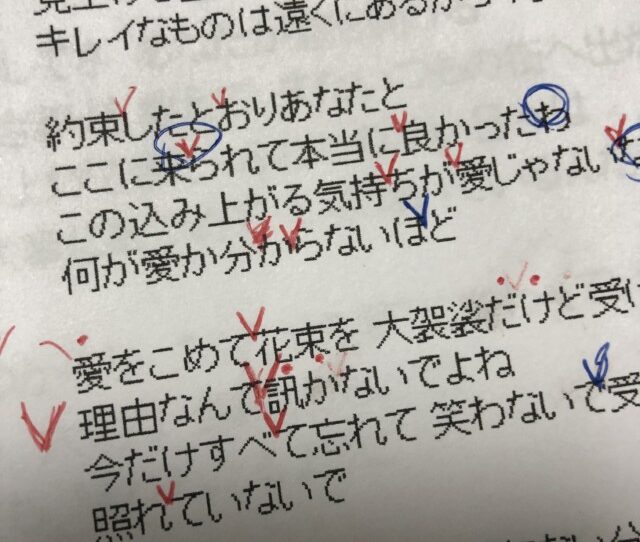 キレイなものは遠くにあるから
約束したとおりあなたと
ここに来られて本当に良かったわ
この込み上がる気持ちが愛じゃない
何が愛か分からないほど
愛をこめて花束を 大袈裟だけど受け
理由なんて訊かないでよね
今だけすべて忘れて 笑わないで受
照れていないで